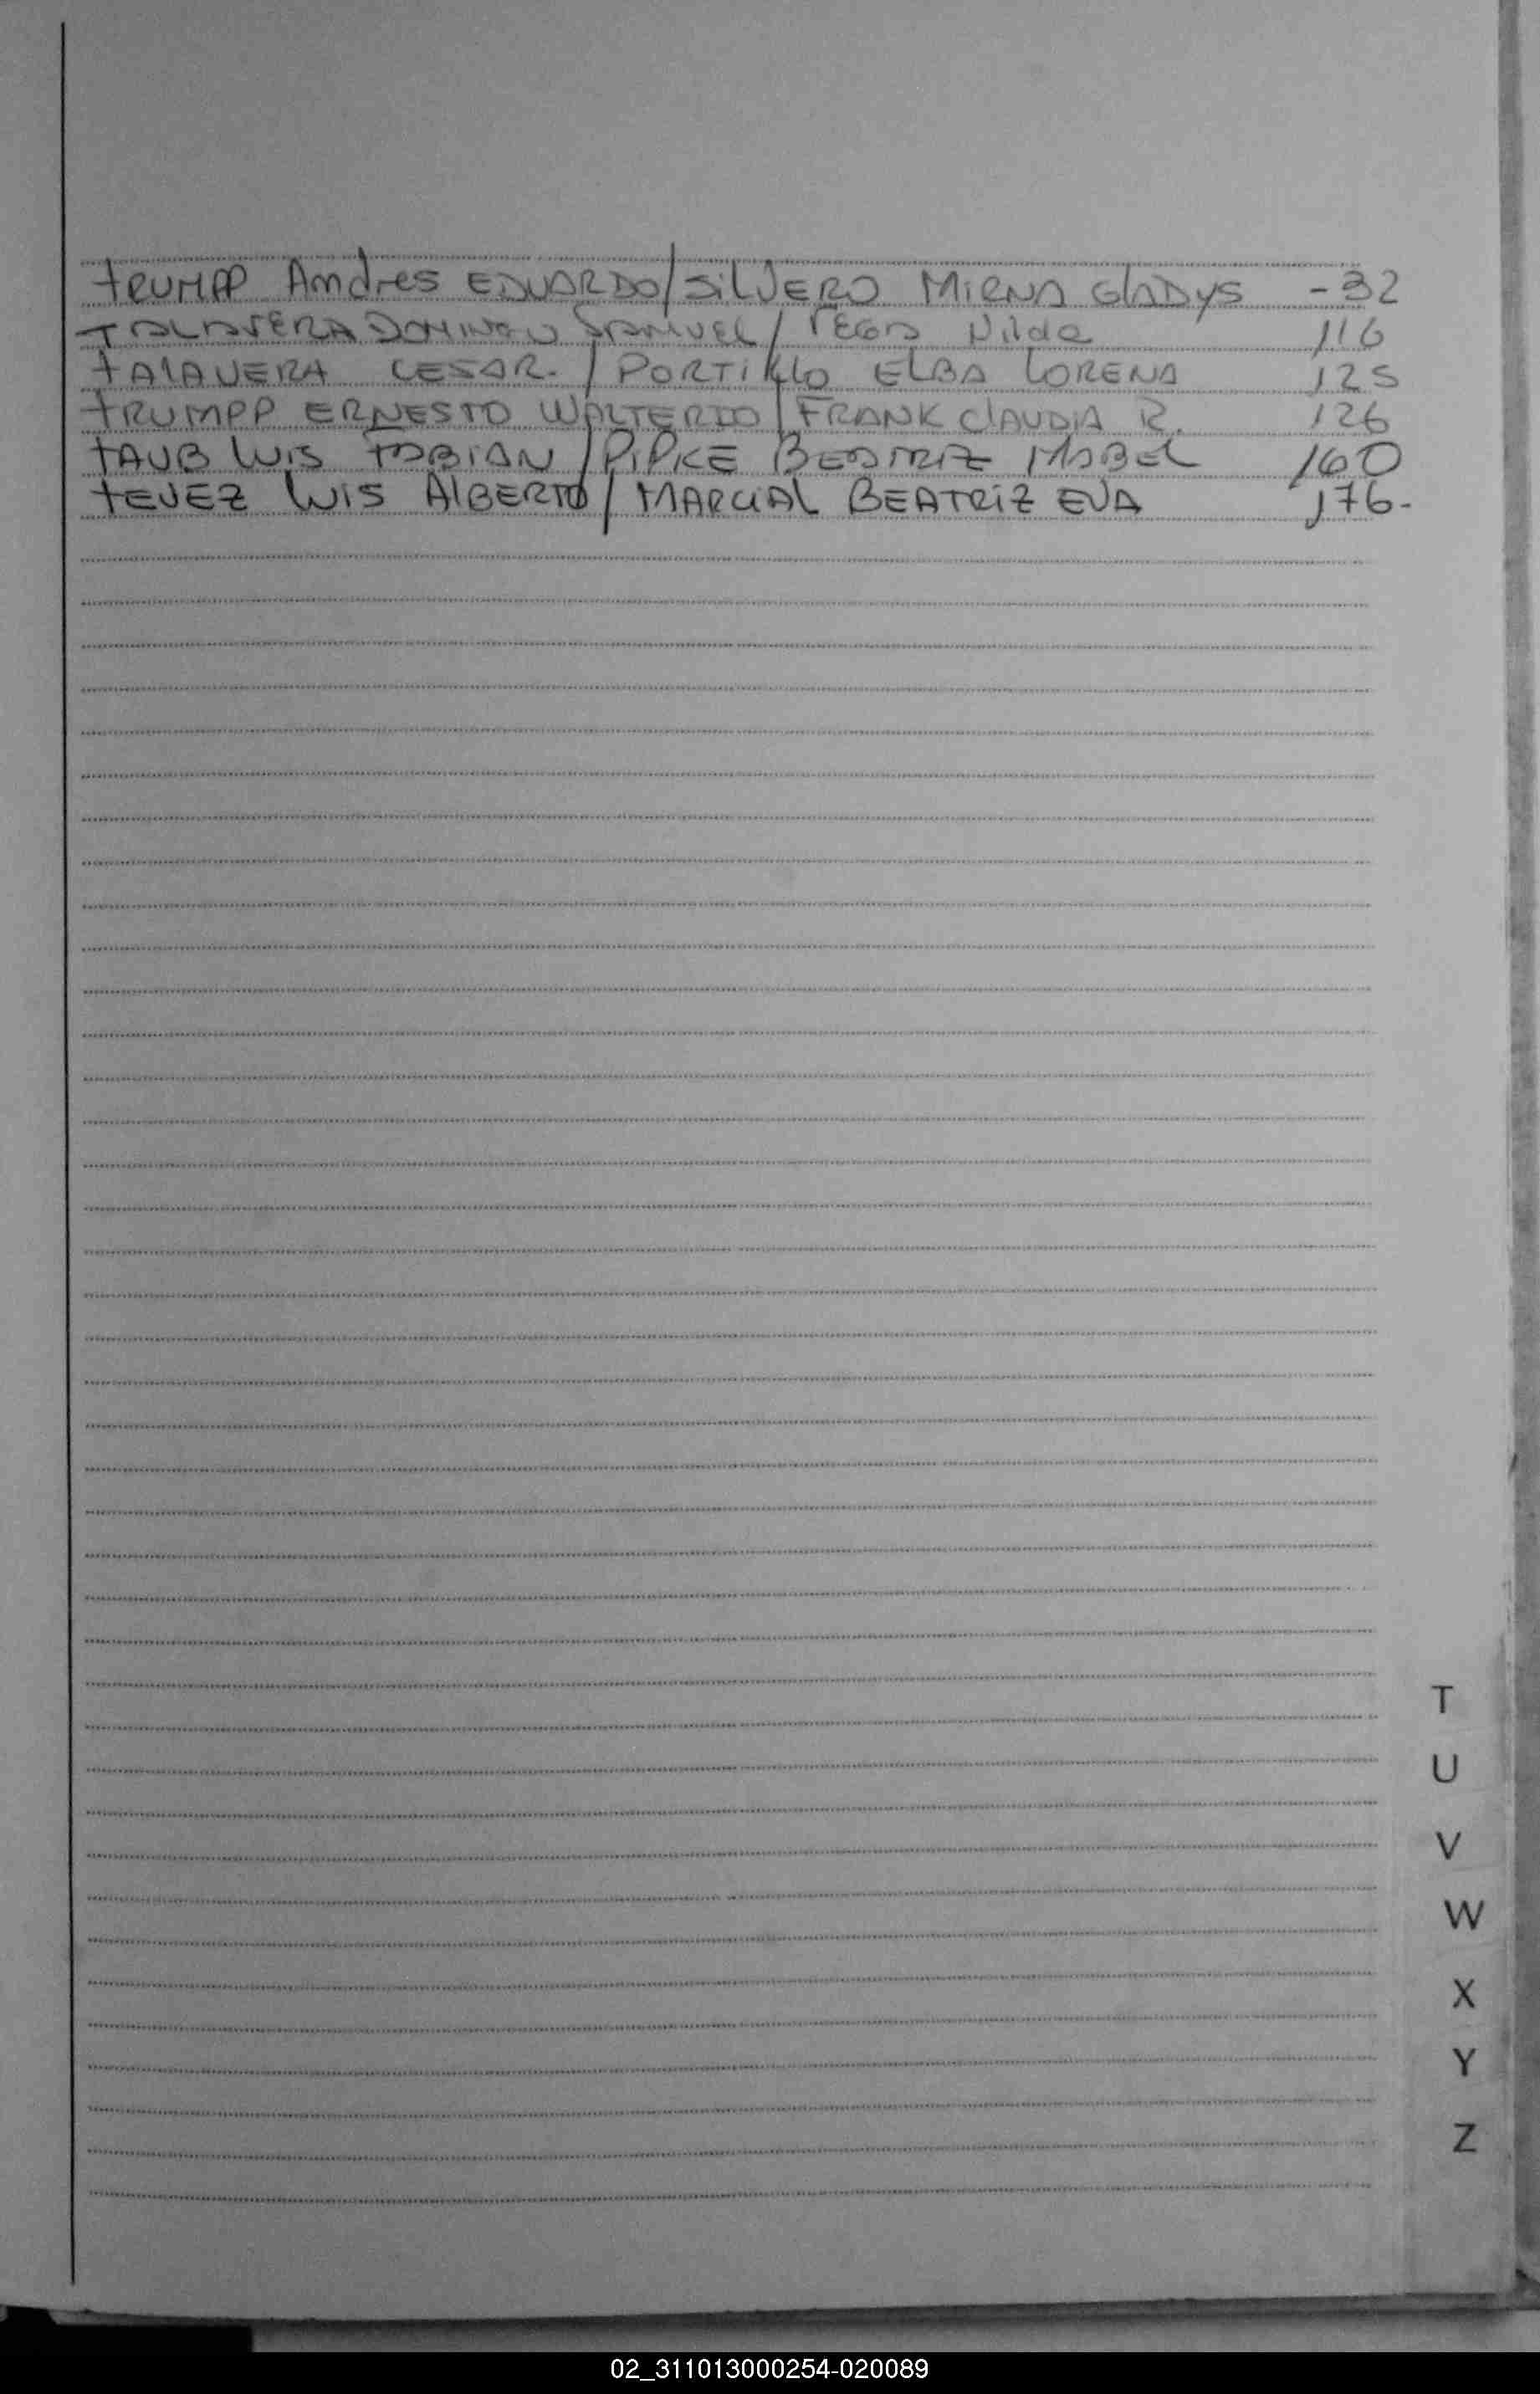 TRUMPP Andres EDUARDO/SILVERO MIRNA GLADYS -32
TALAVERA DOMINGO SAMUEL/ Nilda 116
TALAVERA CESAR. / PORTILLO ELBA LORENA 125
TRUMPP ERNESTO WALTERIO / FRANK CLAUDIA R. 126
TAUB LUIS FABIAN / PIPKE BEATRIZ MABEL 160
TEVEZ LUIS ALBERTO / MARCIAL BEATRIZ EVA 176-
T
U
V
W
X
Y
Z
02_311013000254-020089